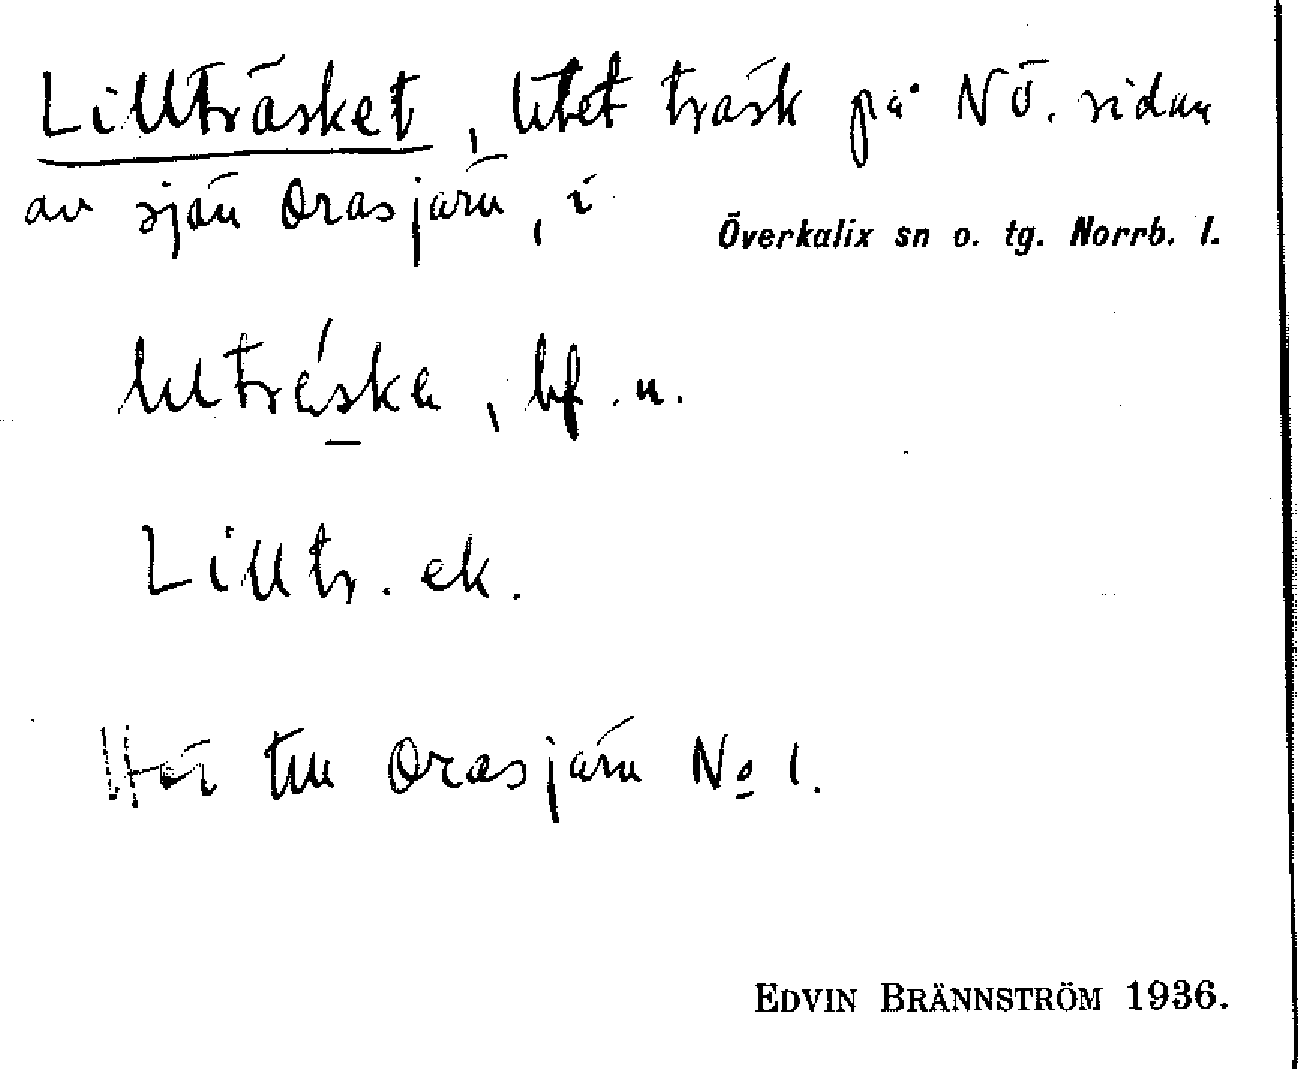 Lillträsket, litet träsk på NÖ. sidan
av sjön Orasjärv, i
Överkalix sn o. tg. Norrb. l.
bf. n.
Lilltr. ek.
Hör till Orasjärv No 1.
EDVIN BRÄNNSTRÖM 1936.